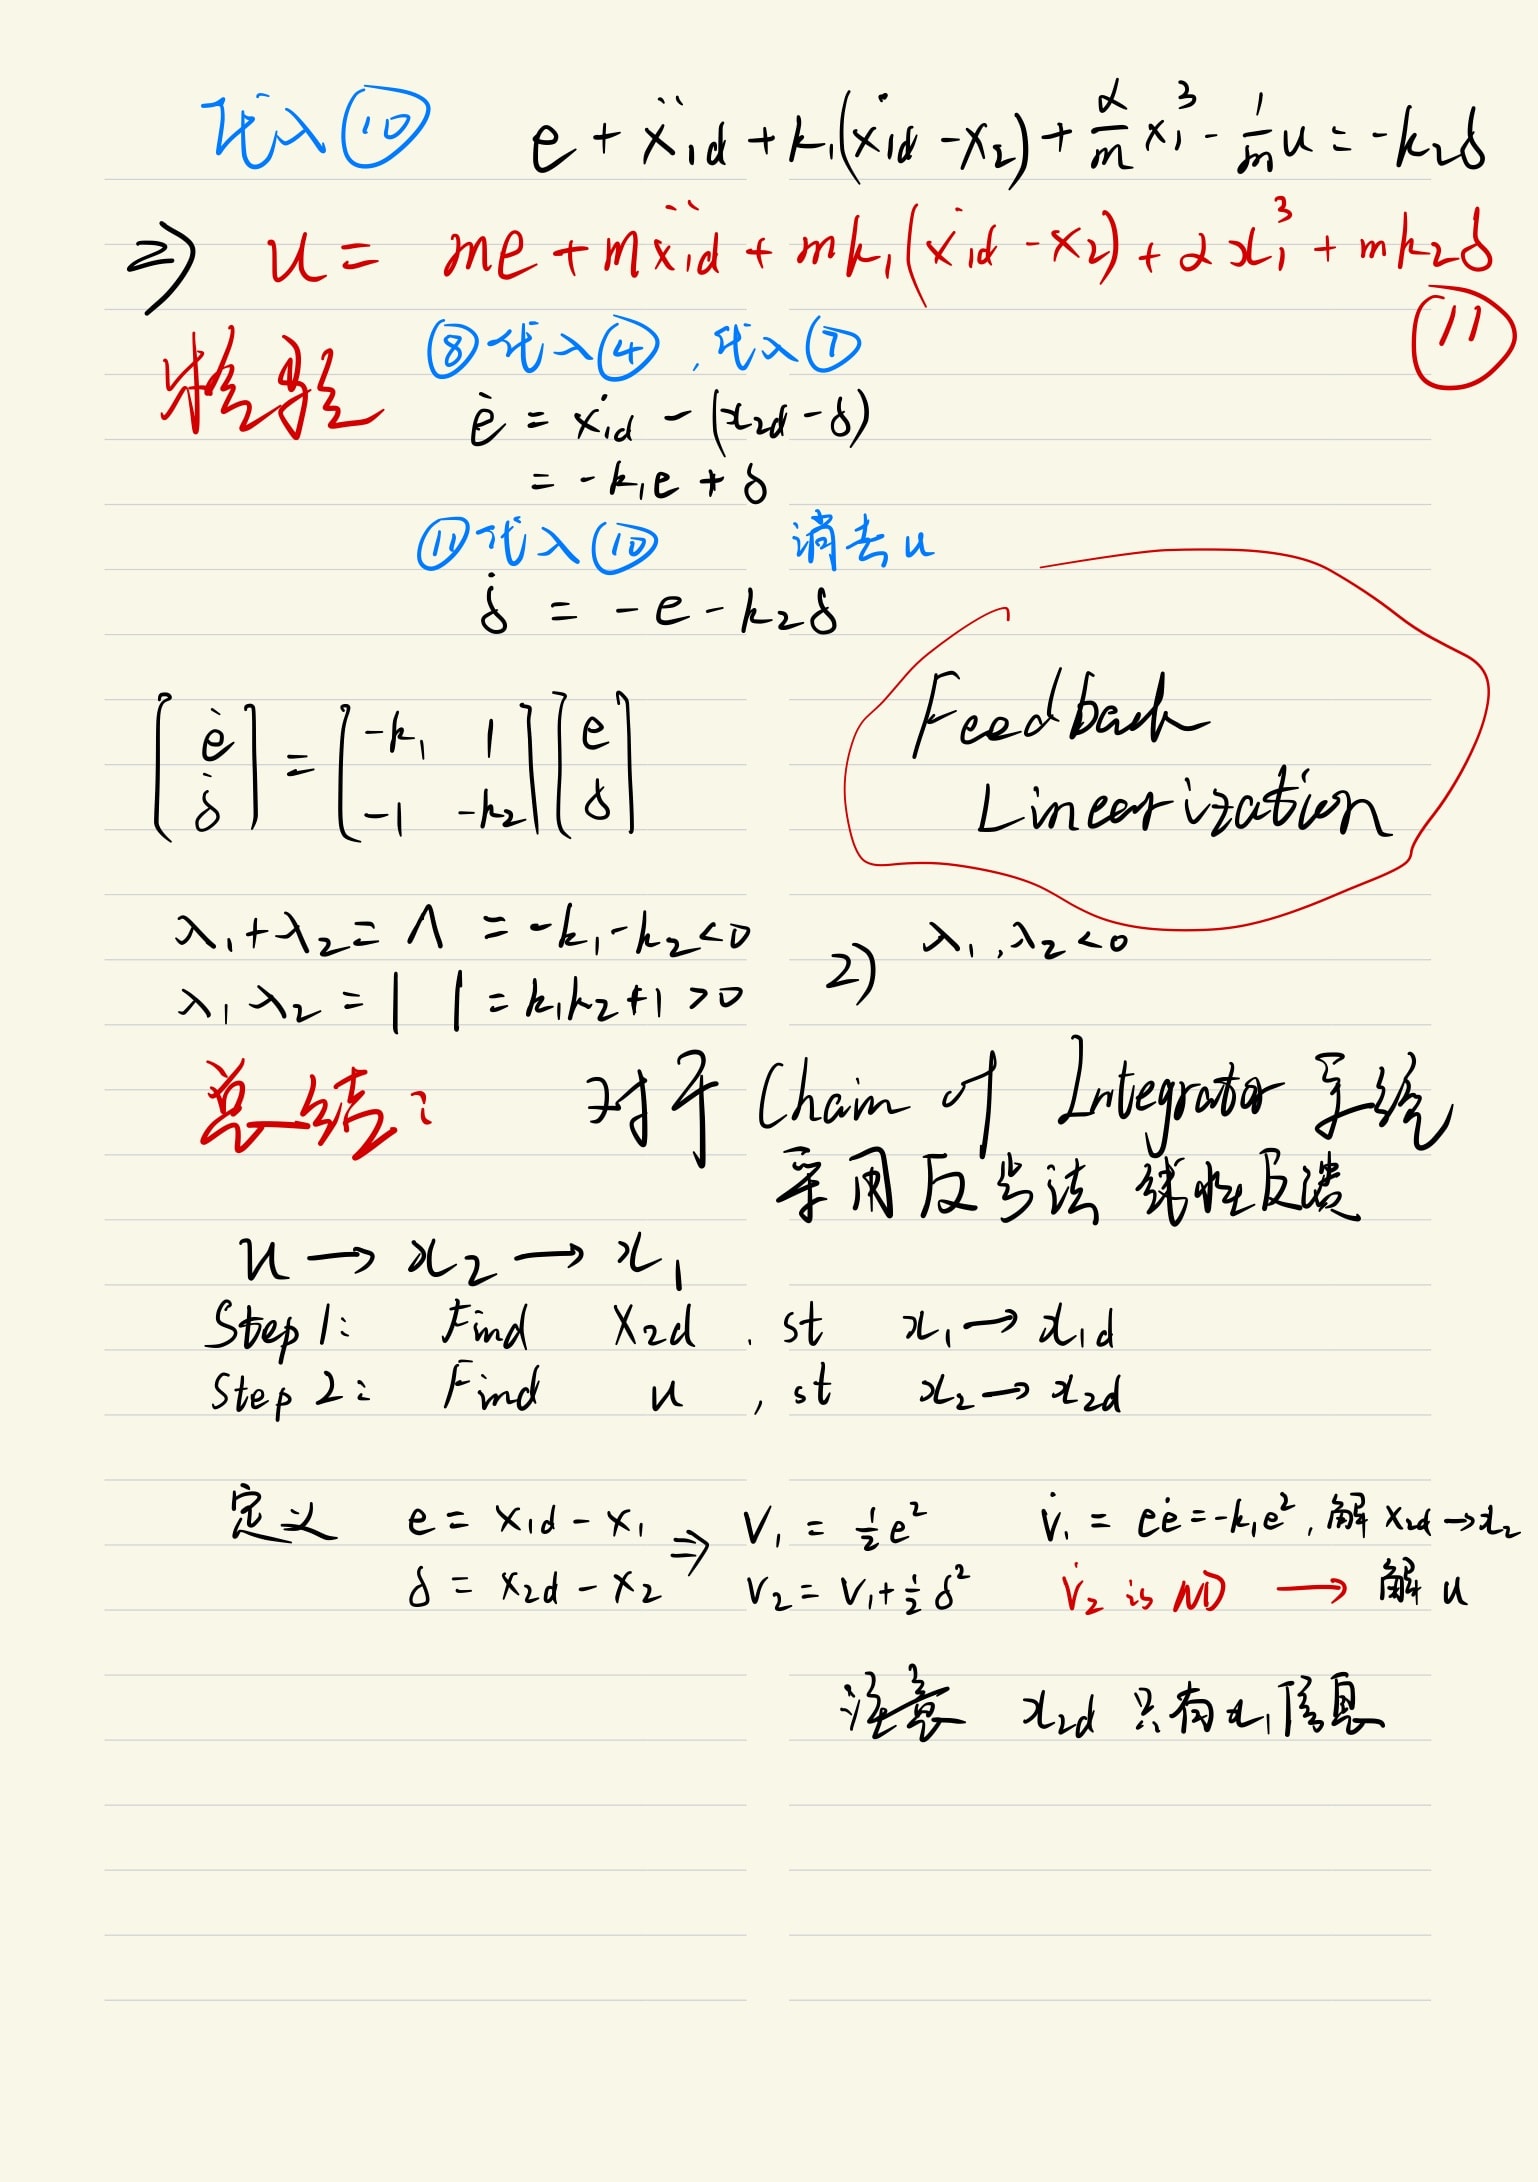 代入⑩ e + ẍ₁d + k₁(ẋ₁d - x₂) + α/m x₁³ - 1/m u = -k₂δ
⇒ u = me + mẍ₁d + mk₁(ẋ₁d - x₂) + αx₁³ + mk₂δ
⑪
检验 ⑧代入④, 代入⑦
ė = ẋ₁d - (x₂d - δ)
= -k₁e + δ
⑪代入⑩ 消去u
δ̇ = -e - k₂δ
[ė δ̇] = [-k₁ 1 -1 -k₂][e δ]
Feedback
Linearization
λ₁+λ₂ = Λ = -k₁-k₂<0
λ₁λ₂ = | | = k₁k₂+1 >0
⇒ λ₁,λ₂<0
总结: 对于 Chain of Integrator 系统
采用反步法 线性反馈
u → x₂ → x₁
Step 1: Find x₂d, st x₁ → x₁d
Step 2: Find u, st x₂ → x₂d
定义 e = x₁d - x₁ ⇒ V₁ = ½e² V̇₁ = eė = -k₁e², 解 x₂d → x₂
δ = x₂d - x₂ V₂ = V₁+½δ² V̇₂ is ND → 解 u
注意 x₂d 只有x₁信息